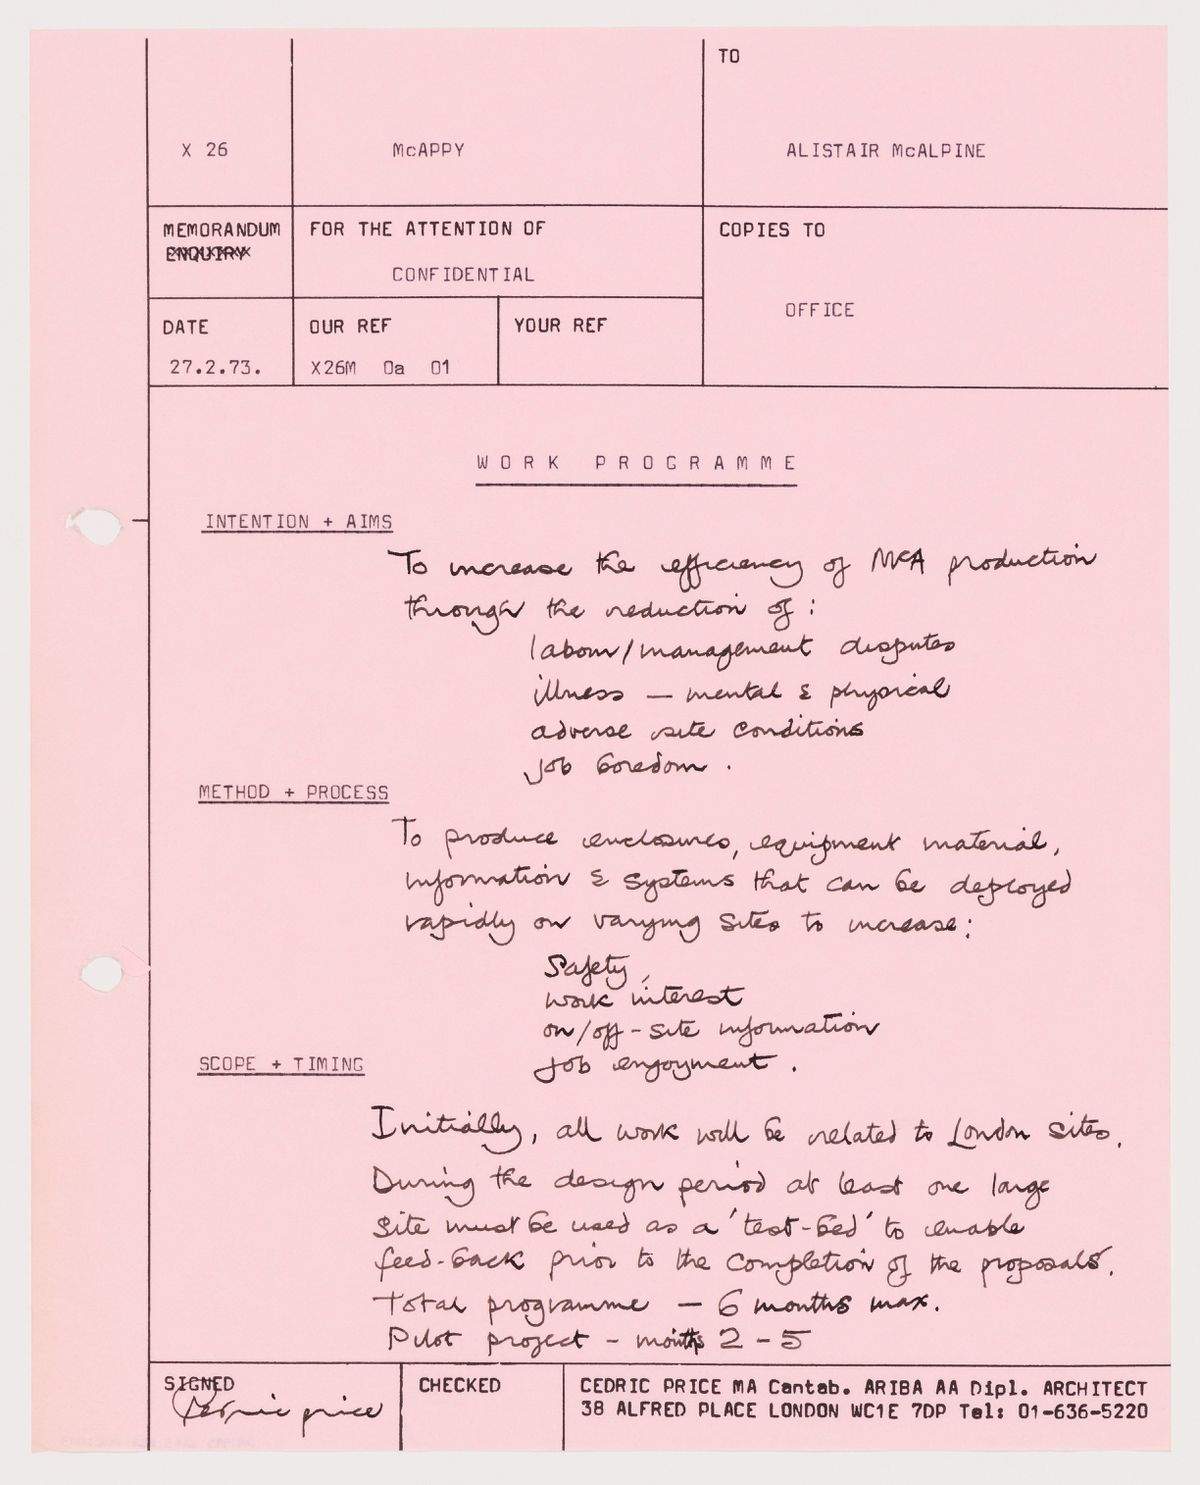 TO
X 26
McAPPY
ALISTAIR McALPINE
MEMORANDUM
ENQUIRY
FOR THE ATTENTION OF
CONFIDENTIAL
COPIES TO
OFFICE
DATE
27.2.73.
OUR REF
X26M 0a 01
YOUR REF
WORK PROGRAMME
INTENTION + AIMS
To increase the efficiency of McA production
through the reduction of :
labour/management disputes
illness — mental & physical
adverse site conditions
job boredom .
METHOD + PROCESS
To produce enclosures, equipment material,
information & systems that can be deployed
rapidly on varying sites to increase:
Safety,
work interest
on/off-site information
Job enjoyment .
SCOPE + TIMING
Initially, all work will be related to London sites.
During the design period at least one large
site must be used as a 'test-bed' to enable
feed-back prior to the completion of the proposals.
Total programme — 6 months max.
Pilot project - months 2-5
SIGNED
Cedric Price
CHECKED
CEDRIC PRICE MA Cantab. ARIBA AA Dipl. ARCHITECT
38 ALFRED PLACE LONDON WC1E 7DP Tel: 01-636-5220